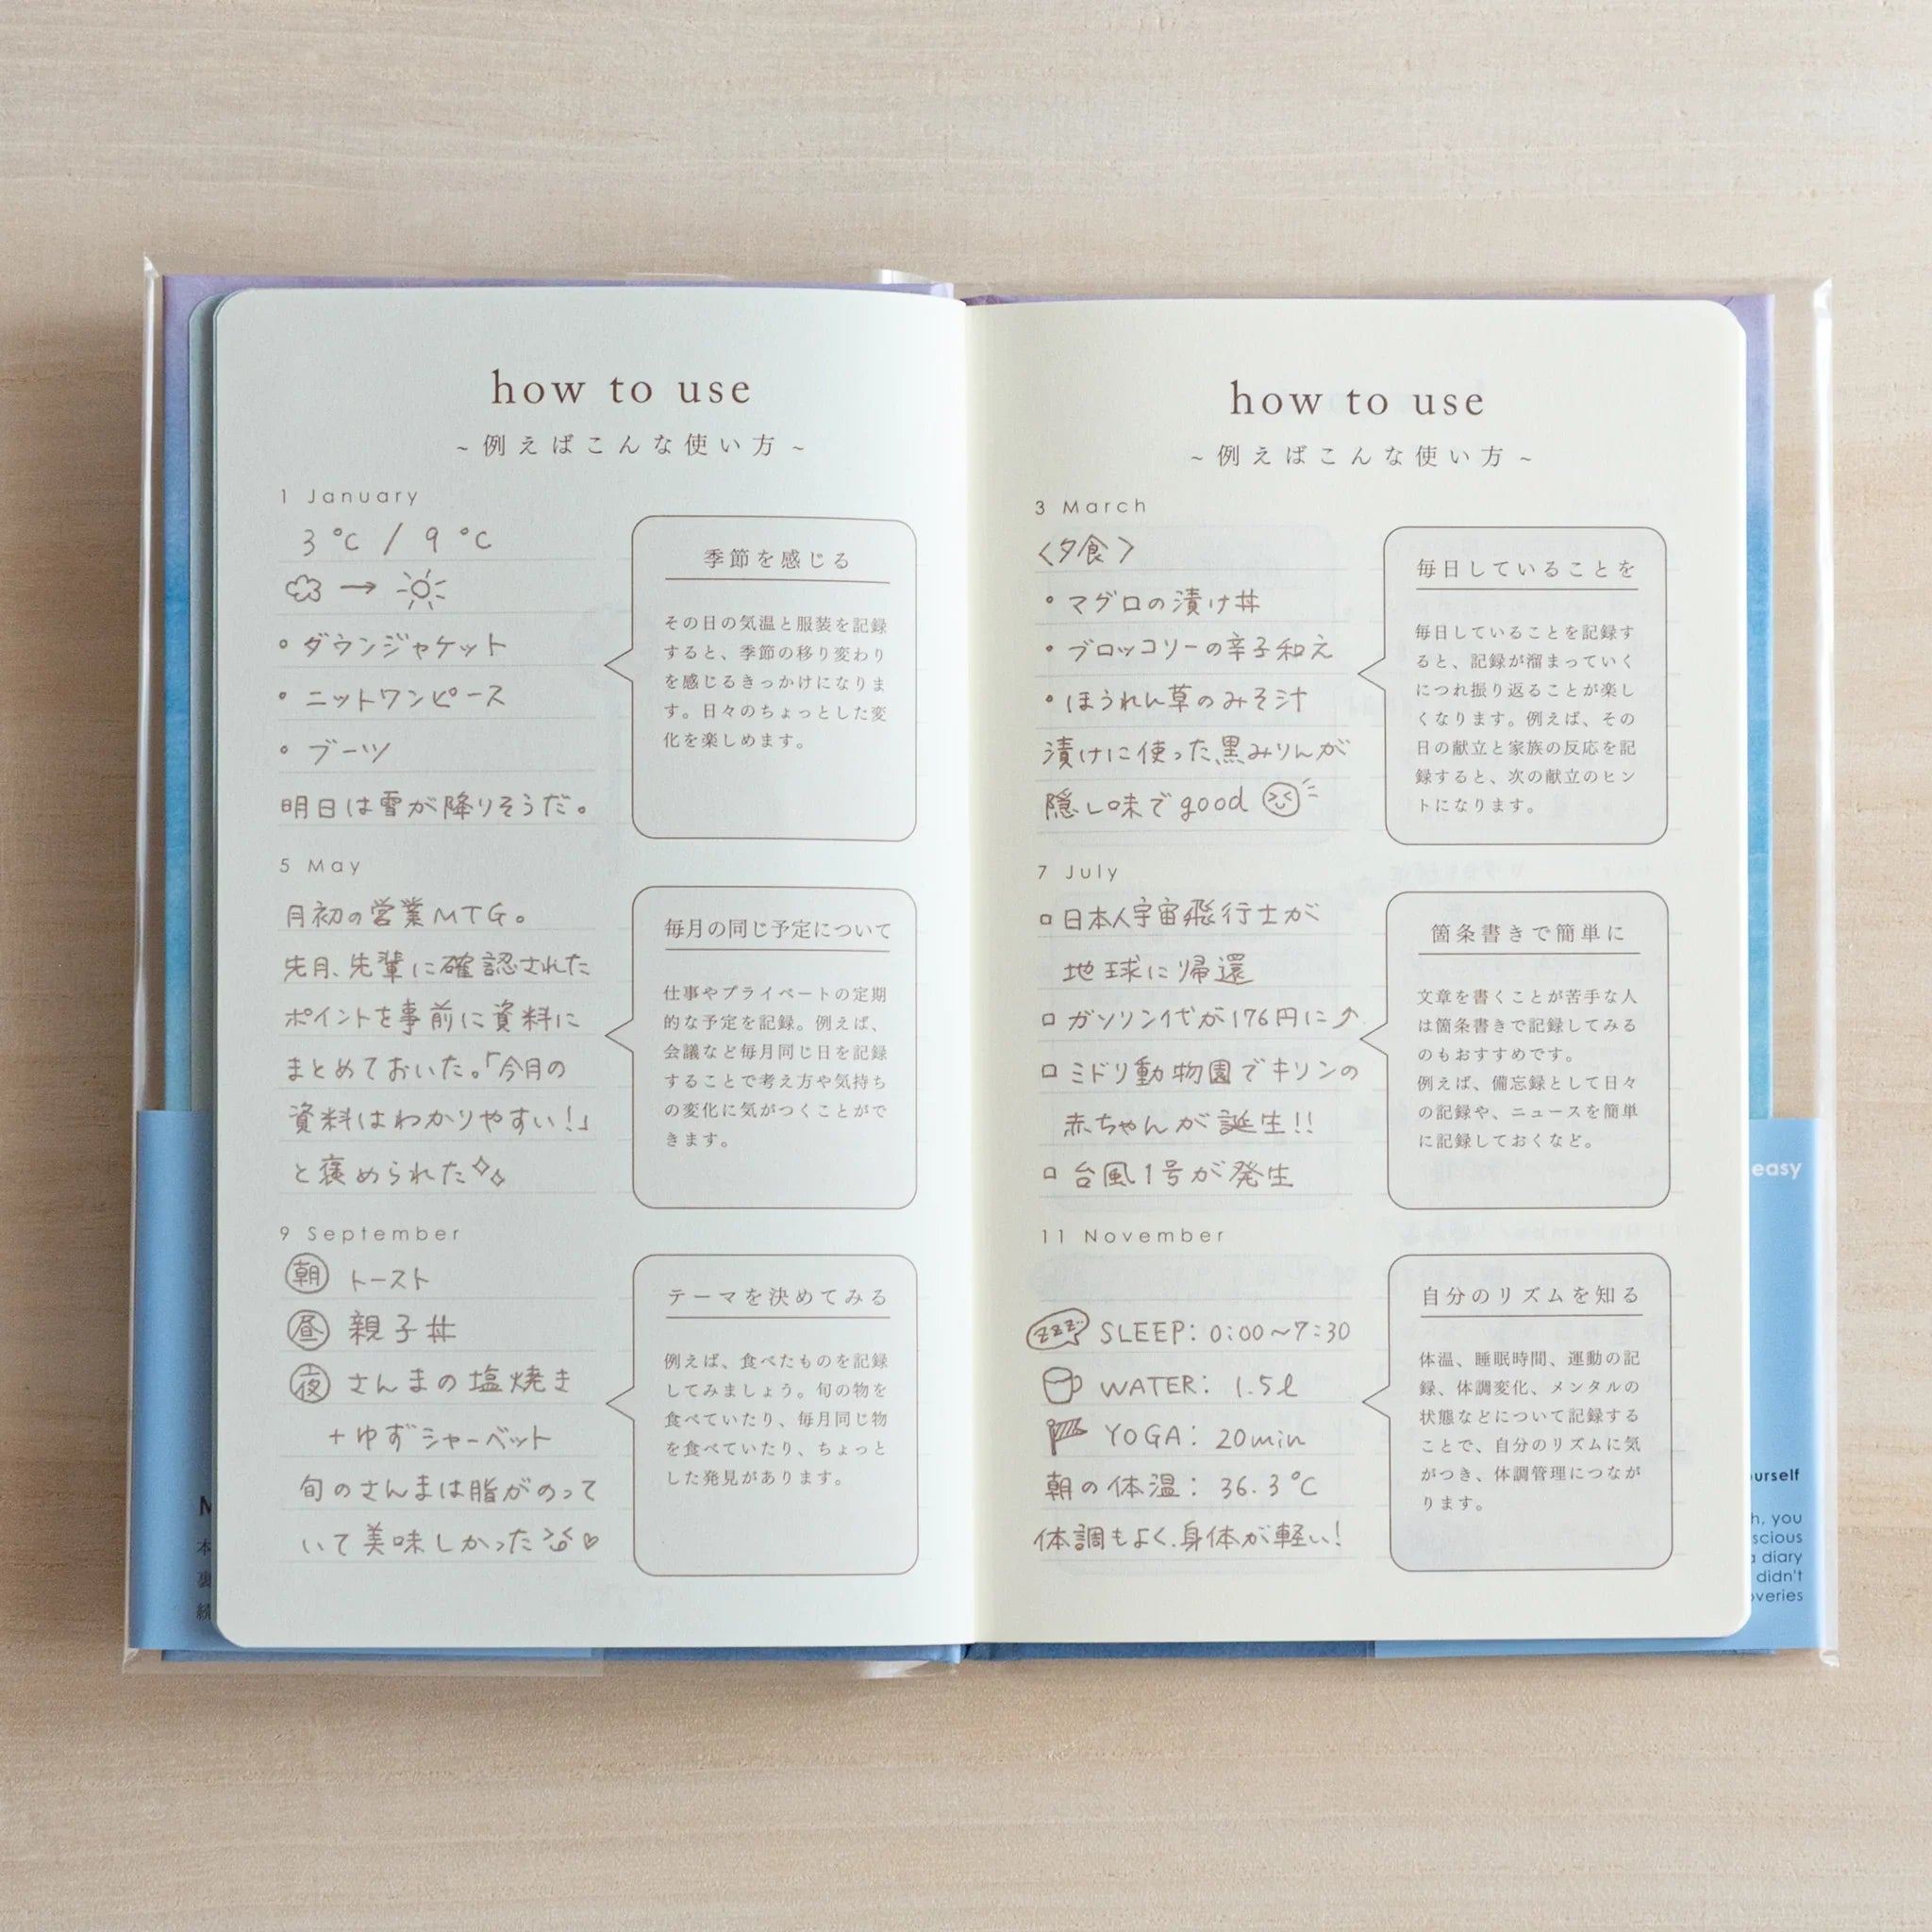 how to use
~例えばこんな使い方~
1 January
3℃ / 9℃
→
・ダウンジャケット
・ニットワンピース
・ブーツ
明日は雪が降りそうだ。
季節を感じる
その日の気温と服装を記録
すると、季節の移り変わり
を感じるきっかけになりま
す。日々のちょっとした変
化を楽しめます。
5 May
月初の営業MTG。
先月、先輩に確認された
ポイントを事前に資料に
まとめておいた。「今月の
資料はわかりやすい!」
と褒められた
毎月の同じ予定について
仕事やプライベートの定期
的な予定を記録。例えば、
会議など毎月同じ日を記録
することで考え方や気持ち
の変化に気がつくことがで
きます。
9 September
朝 トースト
昼 親子丼
夜 さんまの塩焼き
+ゆずシャーベット
旬のさんまは脂がのって
いて美味しかった♡
テーマを決めてみる
例えば、食べたものを記録
してみましょう。旬の物を
食べていたり、毎月同じ物
を食べていたり、ちょっと
した発見があります。
how to use
~例えばこんな使い方~
3 March
〈夕食〉
・マグロの漬け丼
・ブロッコリーの辛子和え
・ほうれん草のみそ汁
漬けに使った黒みりんが
隠し味でgood
毎日していることを
毎日していることを記録す
ると、記録が溜まっていく
につれ振り返ることが楽し
くなります。例えば、その
日の献立と家族の反応を記
録すると、次の献立のヒン
トになります。
7 July
□日本人宇宙飛行士が
地球に帰還
□ガソリン代が176円に⤴
□ミドリ動物園でキリンの
赤ちゃんが誕生!!
□台風1号が発生
箇条書きで簡単に
文章を書くことが苦手な人
は箇条書きで記録してみる
のもおすすめです。
例えば、備忘録として日々
の記録や、ニュースを簡単
に記録しておくなど。
11 November
zzz.. SLEEP: 0:00~7:30
WATER: 1.5ℓ
YOGA: 20min
朝の体温: 36.3℃
体調もよく、身体が軽い!
自分のリズムを知る
体温、睡眠時間、運動の記
録、体調変化、メンタルの
状態などについて記録する
ことで、自分のリズムに気
がつき、体調管理につなが
ります。
easy
you
diary
didn't